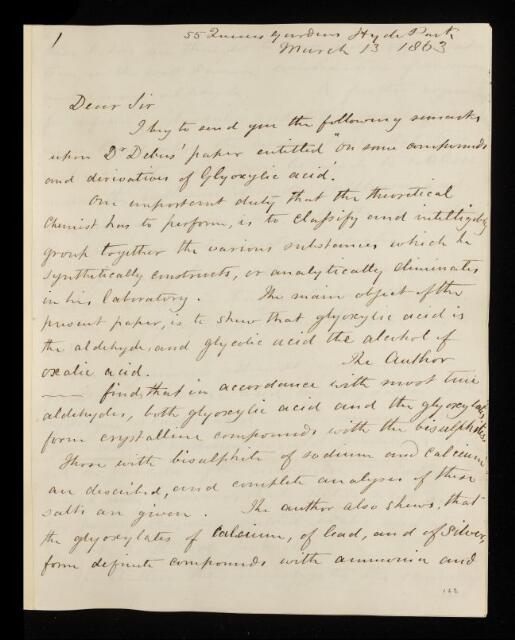 1
55 Queens Gardens Hyde Park.
March 13 1863
Dear Sir
I beg to send you the following remarks
upon Dr Debus' paper entitled "On some compounds
and derivatives of Glyoxylic acid".
One important duty that the theoretical
Chemist has to perform, is to classify and intelligibly
group together the various substances which he
synthetically constructs, or analytically eliminates
in his laboratory. The main object of the
present paper, is to shew that glyoxylic acid is
the aldehyde, and glycolic acid the alcohol of
oxalic acid. The Author
finds, that in accordance with most true
aldehydes, both glyoxylic acid and the glyoxylates,
form crystalline compounds with the bisulphites.
Those with bisulphite of sodium and calcium
are described, and complete analyses of these
salts are given. The author also shews, that
the glyoxylates of calcium, of lead, and of silver,
form definite compounds with ammonia and